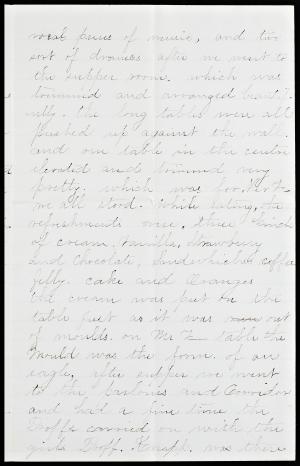 vocal pieces of music, and two
sort of dramas after we went to
the supper room. which was
trimmed and arranged beauti-
fully. the long tables were all
pushed up against the wall.
and one table in the centre
elevated and trimmed very
pretty. which was for
we all stood. While eating, the
refreshments were. three kinds
of cream, Vanilla, Strawberry
and Chocolate, Sandwiches coffee
jelly. cake and Oranges
the cream was put on the
table just as it was out
of moulds. on Mr table the
mould was the form of an
eagle, after supper we went
to the parlories and Corridor
and had a fine time the
Proffs carried on with the
girls Proff. Knapp. was there